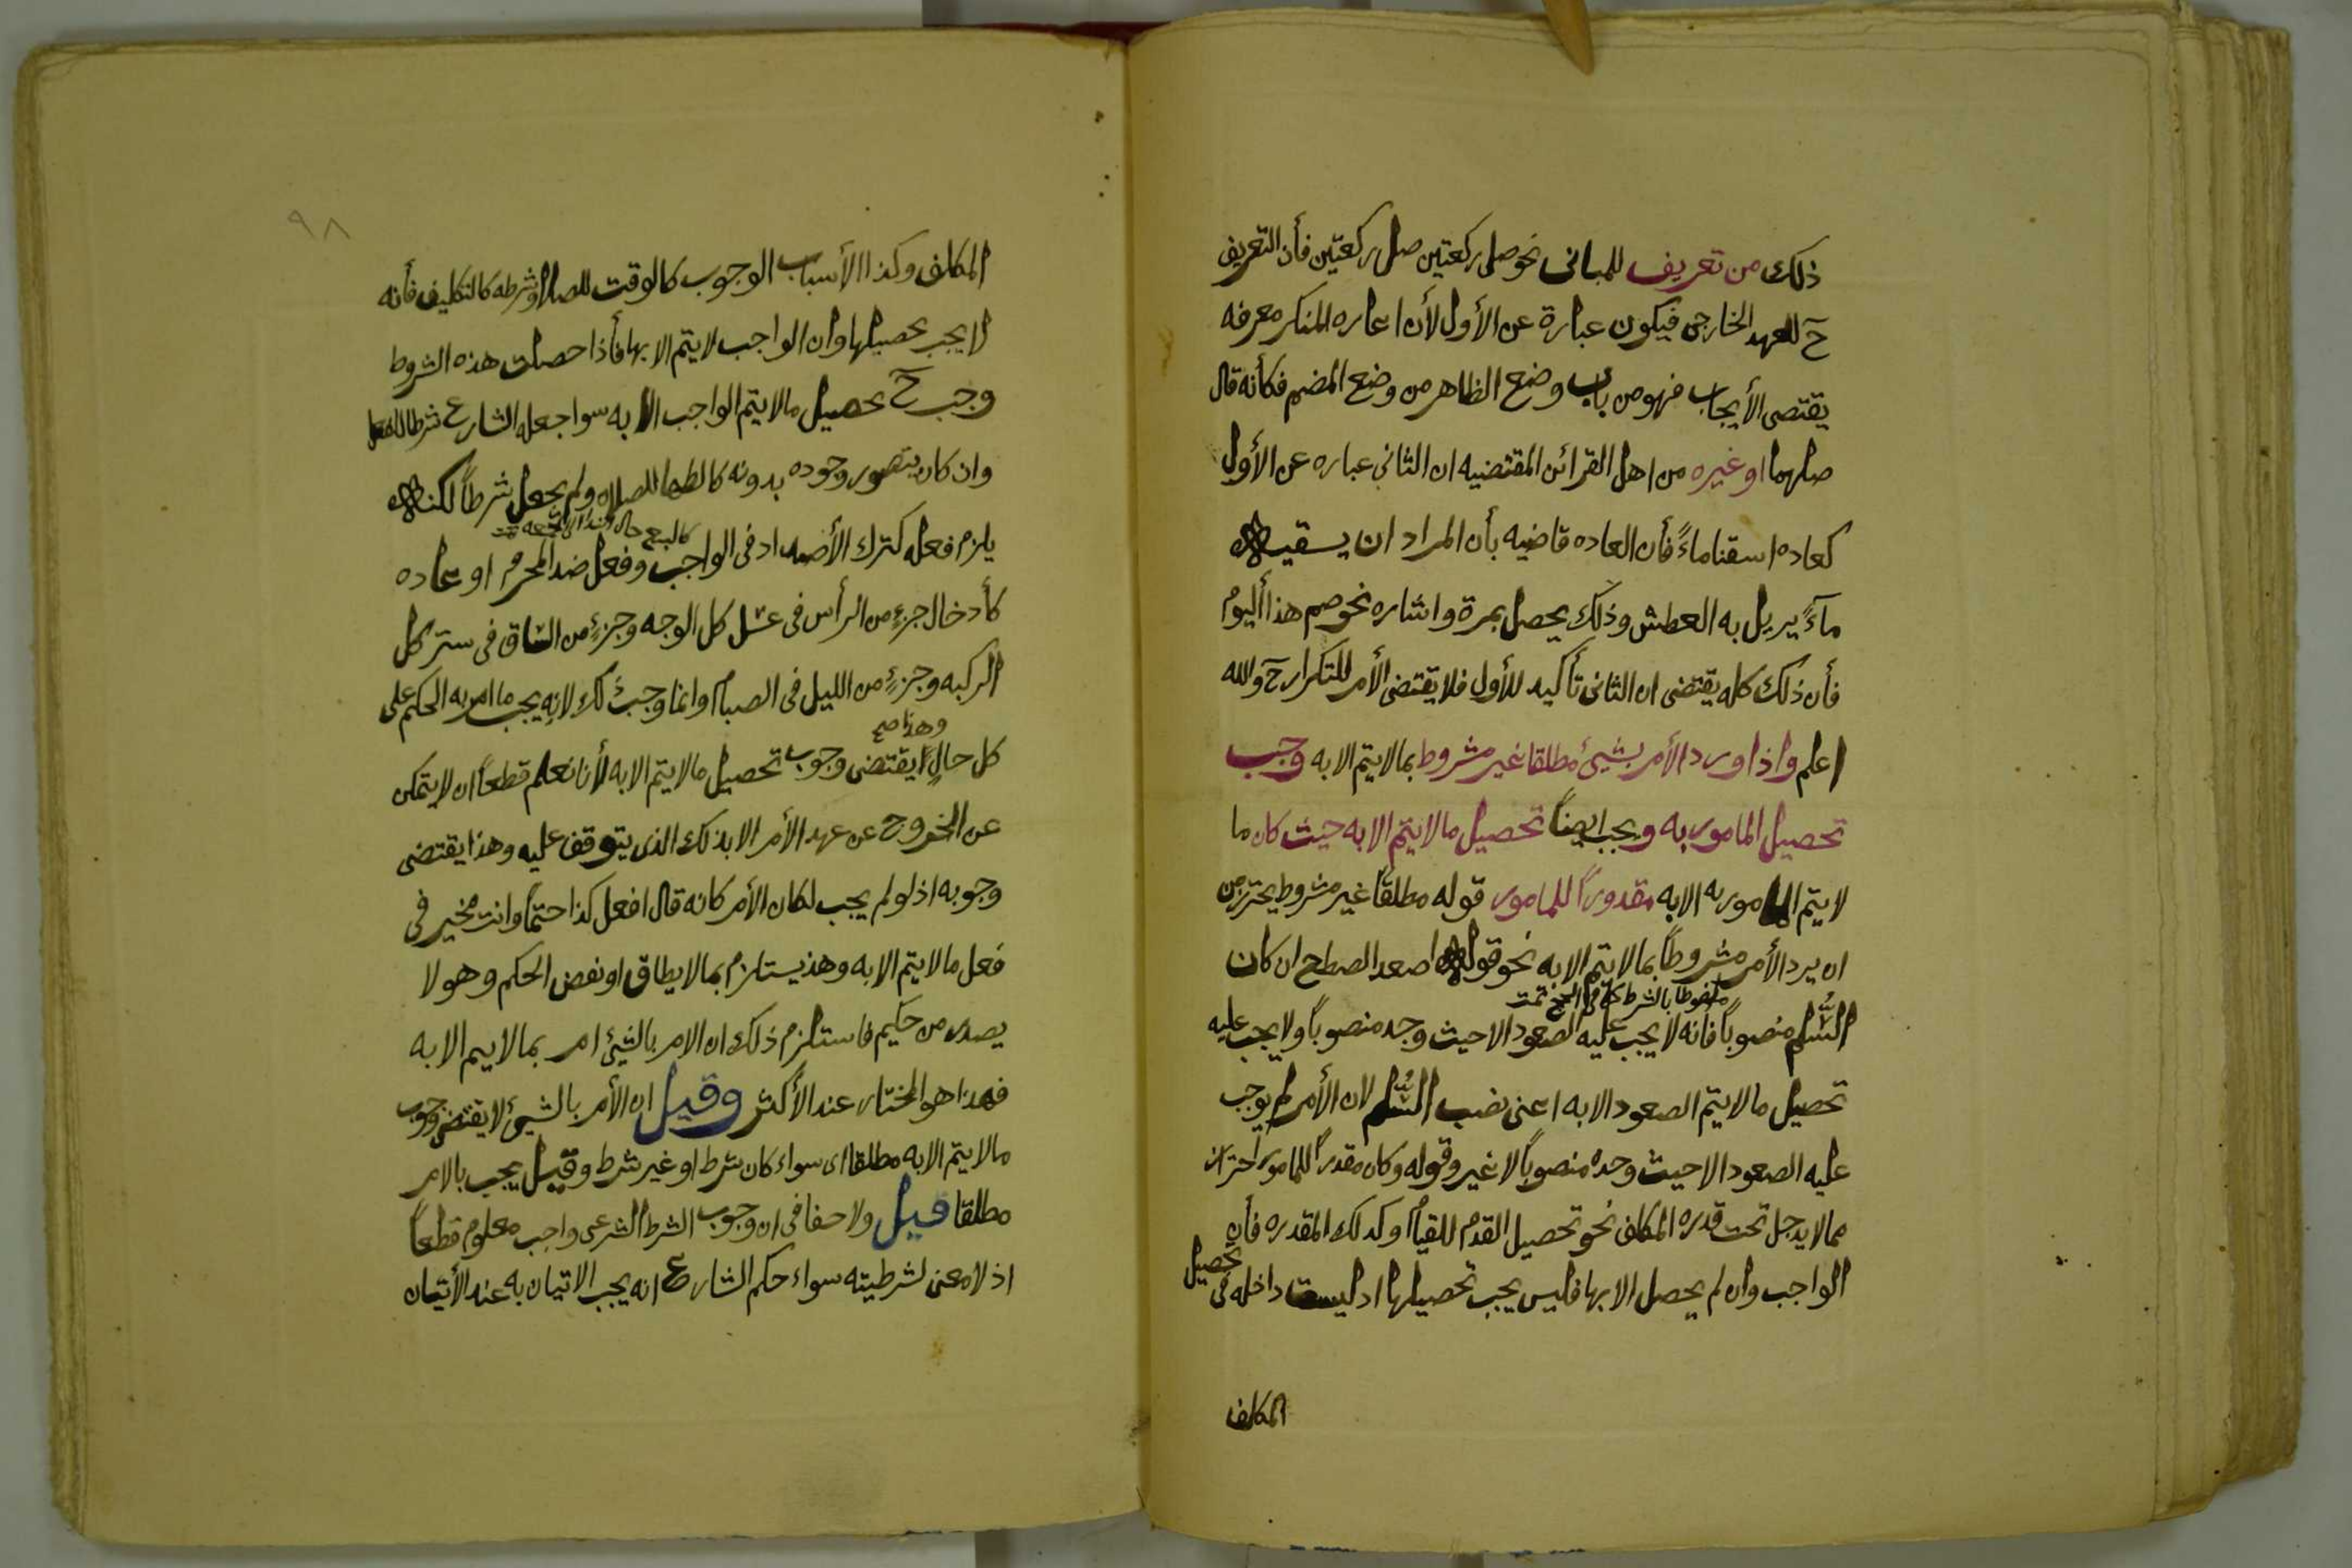 ذلك من تعريف للمبانى نحو صلى ركعتين صل ركعتين فأن التعريف
حَ للعهد الخارجى فيكون عبارة عن الأول لأن اعاره المنكر معرفه
يقتصى الأيجاب فهو من باب وضع الظاهر من وضع المضم فكأنه قال
صلهما او غيره من اهل القرائن المقتضيه ان الثانى عباره عن الأول
كعاده اسقنا ماءً فأن العاده قاضيه بأن المراد ان يسقيه
مآءً يريل به العطش وذلك يحصل بمرة واشاره نحو صم هذا أليوم
فأن ذلك كله يقتضى ان الثانى تأكيد للأول فلا يقتضى الأمر للتكرار حَ والله
اعلم واذا ورد الأمر بشيئ مطلقا غير مشروط بما لايتم الا به وجب
تحصيل المامور به ويجب ايضاً تحصيل مالا يتم الا به حيث كان ما
لا يتم المامور به الا به مقدوراً للمامور قوله مطلقاً غير مشروط يحترز من
ان يرد الأمر مشروطاً بما لا يتم الا به نحو قوله اصعد الصطح ان كان
ملفوظا بالشرط تمت
السُّلم منصوباً فانه لا يجب عليه الصعود الا حيث وجد منصوباً ولا يجب عليه
تحصيل ما لا يتم الصعود الا به اعنى نصب السُّلم لان الأمر لم يوجب
عليه الصعود الا حيث وجده منصوباً لا غير وقوله وكان مقدراً للمامور احتراز
مما لا يدجل تحت قدره المكلف نحو تحصيل القدم للقيام وكدلك المقدره فأن
تحصيل
الواجب وان لم يحصل الا بها فليس يجب تحصيلها اد ليست داخله فى
المكلف
٩٨
المكلف وكذا الأسباب الوجوب كالوقت للصلاة وشرطه كالتكليف فأنه
لا يجب تحصيلها وان الواجب لا يتم الا بها فأذا حصلت هذه الشروط
وجب حَ تحصيل مالا يتم الواجب الا به سوا جعله الشارع شرطا للفعل
وان كان يتصور وجوده بدونه كالطها للصلاه ولم يجعل شرطاً لكنه
كالبيع حال تمت
يلزم فعله كترك الأصداد فى الواجب وفعل ضد المحرم او عاده
كأدخال جزءٍ من الرأس فى غسل كل الوجه وجزءٍ من الساق فى ستر كل
الركبه وجزءٍ من الليل فى الصيام وانما وجب ذلك لانه يجب ما امر به الحكم على
وهذا صح
كل حالٍ يقتضى وجوب تحصيل مالا يتم الا به لأنا نعلم قطعاً ان لا يتمكن
عن الخروج عن عهد الأمر الا بذلك الذى يتوقف عليه وهذا يقتضى
وجوبه اذ لو لم يجب لكان الأمر كانه قال افعل كذا حتماً وانت مخير فى
فعل مالا يتم الا به وهذ يستلزم بما لا يطاق او نفض الحكم وهو لا
يصدر من حكيم فاستلزم ذلك ان الامر بالشيئ امر بما لا يم الا به
فهذا هو المختار عند الأكثر وقيل ان الأمر بالشيئ لا يقتضى وجوب
مالا يتم الا به مطلقا اى سواء كان شرط او غير شرط وقيل يجب بالامر
مطلقا قيل ولا خفا فى ان وجوب الشرط الشرعى واجب معلوم قطعاً
اذ لا معنى لشرطيته سواء حكم الشارع انه يجب الاتيان به عند الأتيان